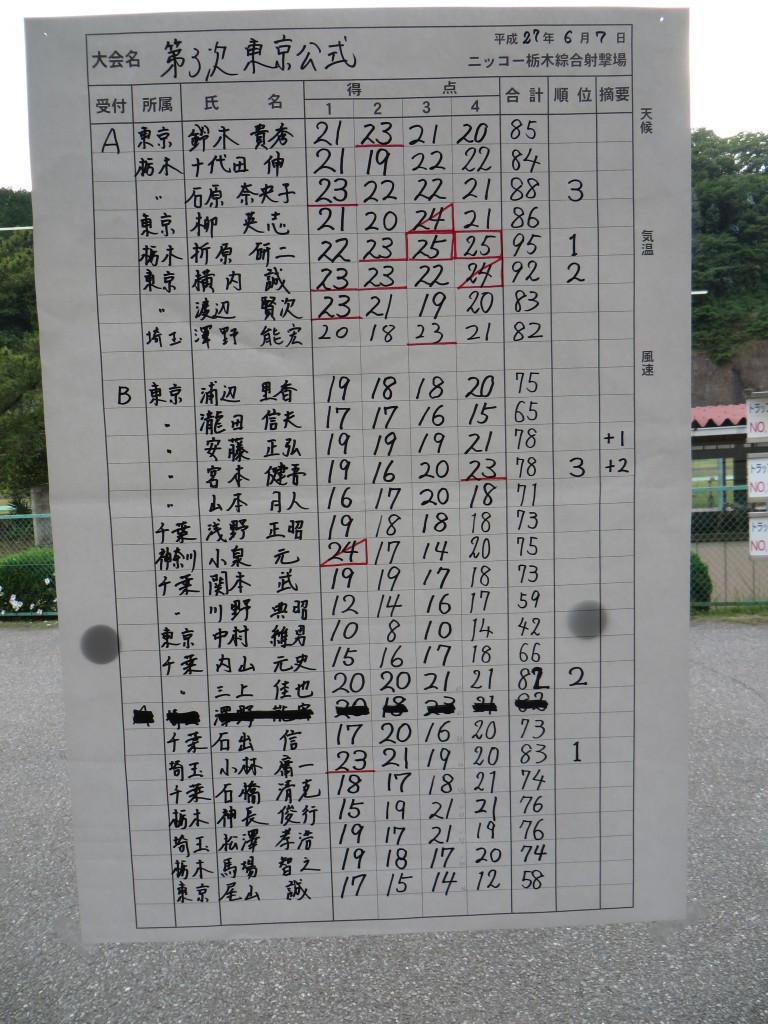 平成27年6月7日
大会名 第3次 東京公式 ニッコー栃木綜合射撃場
受付 所属 氏名 得点 合計 順位 摘要
1 2 3 4
天候
気温
風速
A 東京 鈴木 貴秀 21 23 21 20 85
栃木 十代田 伸 21 19 22 22 84
〃 石原 奈央子 23 22 22 21 88 3
東京 柳 英志 21 20 24 21 86
栃木 折原 研二 22 23 25 25 95 1
東京 横内 誠 23 23 22 24 92 2
〃 渡辺 賢次 23 21 19 20 83
埼玉 澤野 能宏 20 18 23 21 82
B 東京 浦辺 里香 19 18 18 20 75
〃 瀧田 信夫 17 17 16 15 65
〃 安藤 正弘 19 19 19 21 78 +1
〃 宮本 健吾 19 16 20 23 78 3 +2
〃 山本 月人 16 17 20 18 71
千葉 浅野 正昭 19 18 18 18 73
神奈川 小泉 元 24 17 14 20 75
千葉 関本 武 19 19 17 18 73
〃 川野 典昭 12 14 16 17 59
東京 中村 雄男 10 8 10 14 42
千葉 内山 元史 15 16 17 18 66
〃 三上 佳也 20 20 21 21 82 2
千葉 石出 信 17 20 16 20 73
埼玉 小林 庸一 23 21 19 20 83 1
千葉 石橋 清克 18 17 18 21 74
栃木 神長 俊行 15 19 21 21 76
埼玉 松澤 孝浩 19 17 21 19 76
栃木 馬場 智之 19 18 17 20 74
東京 尾山 誠 17 15 14 12 58
トラップ
NO.
トラップ
NO.
トラップ
NO.